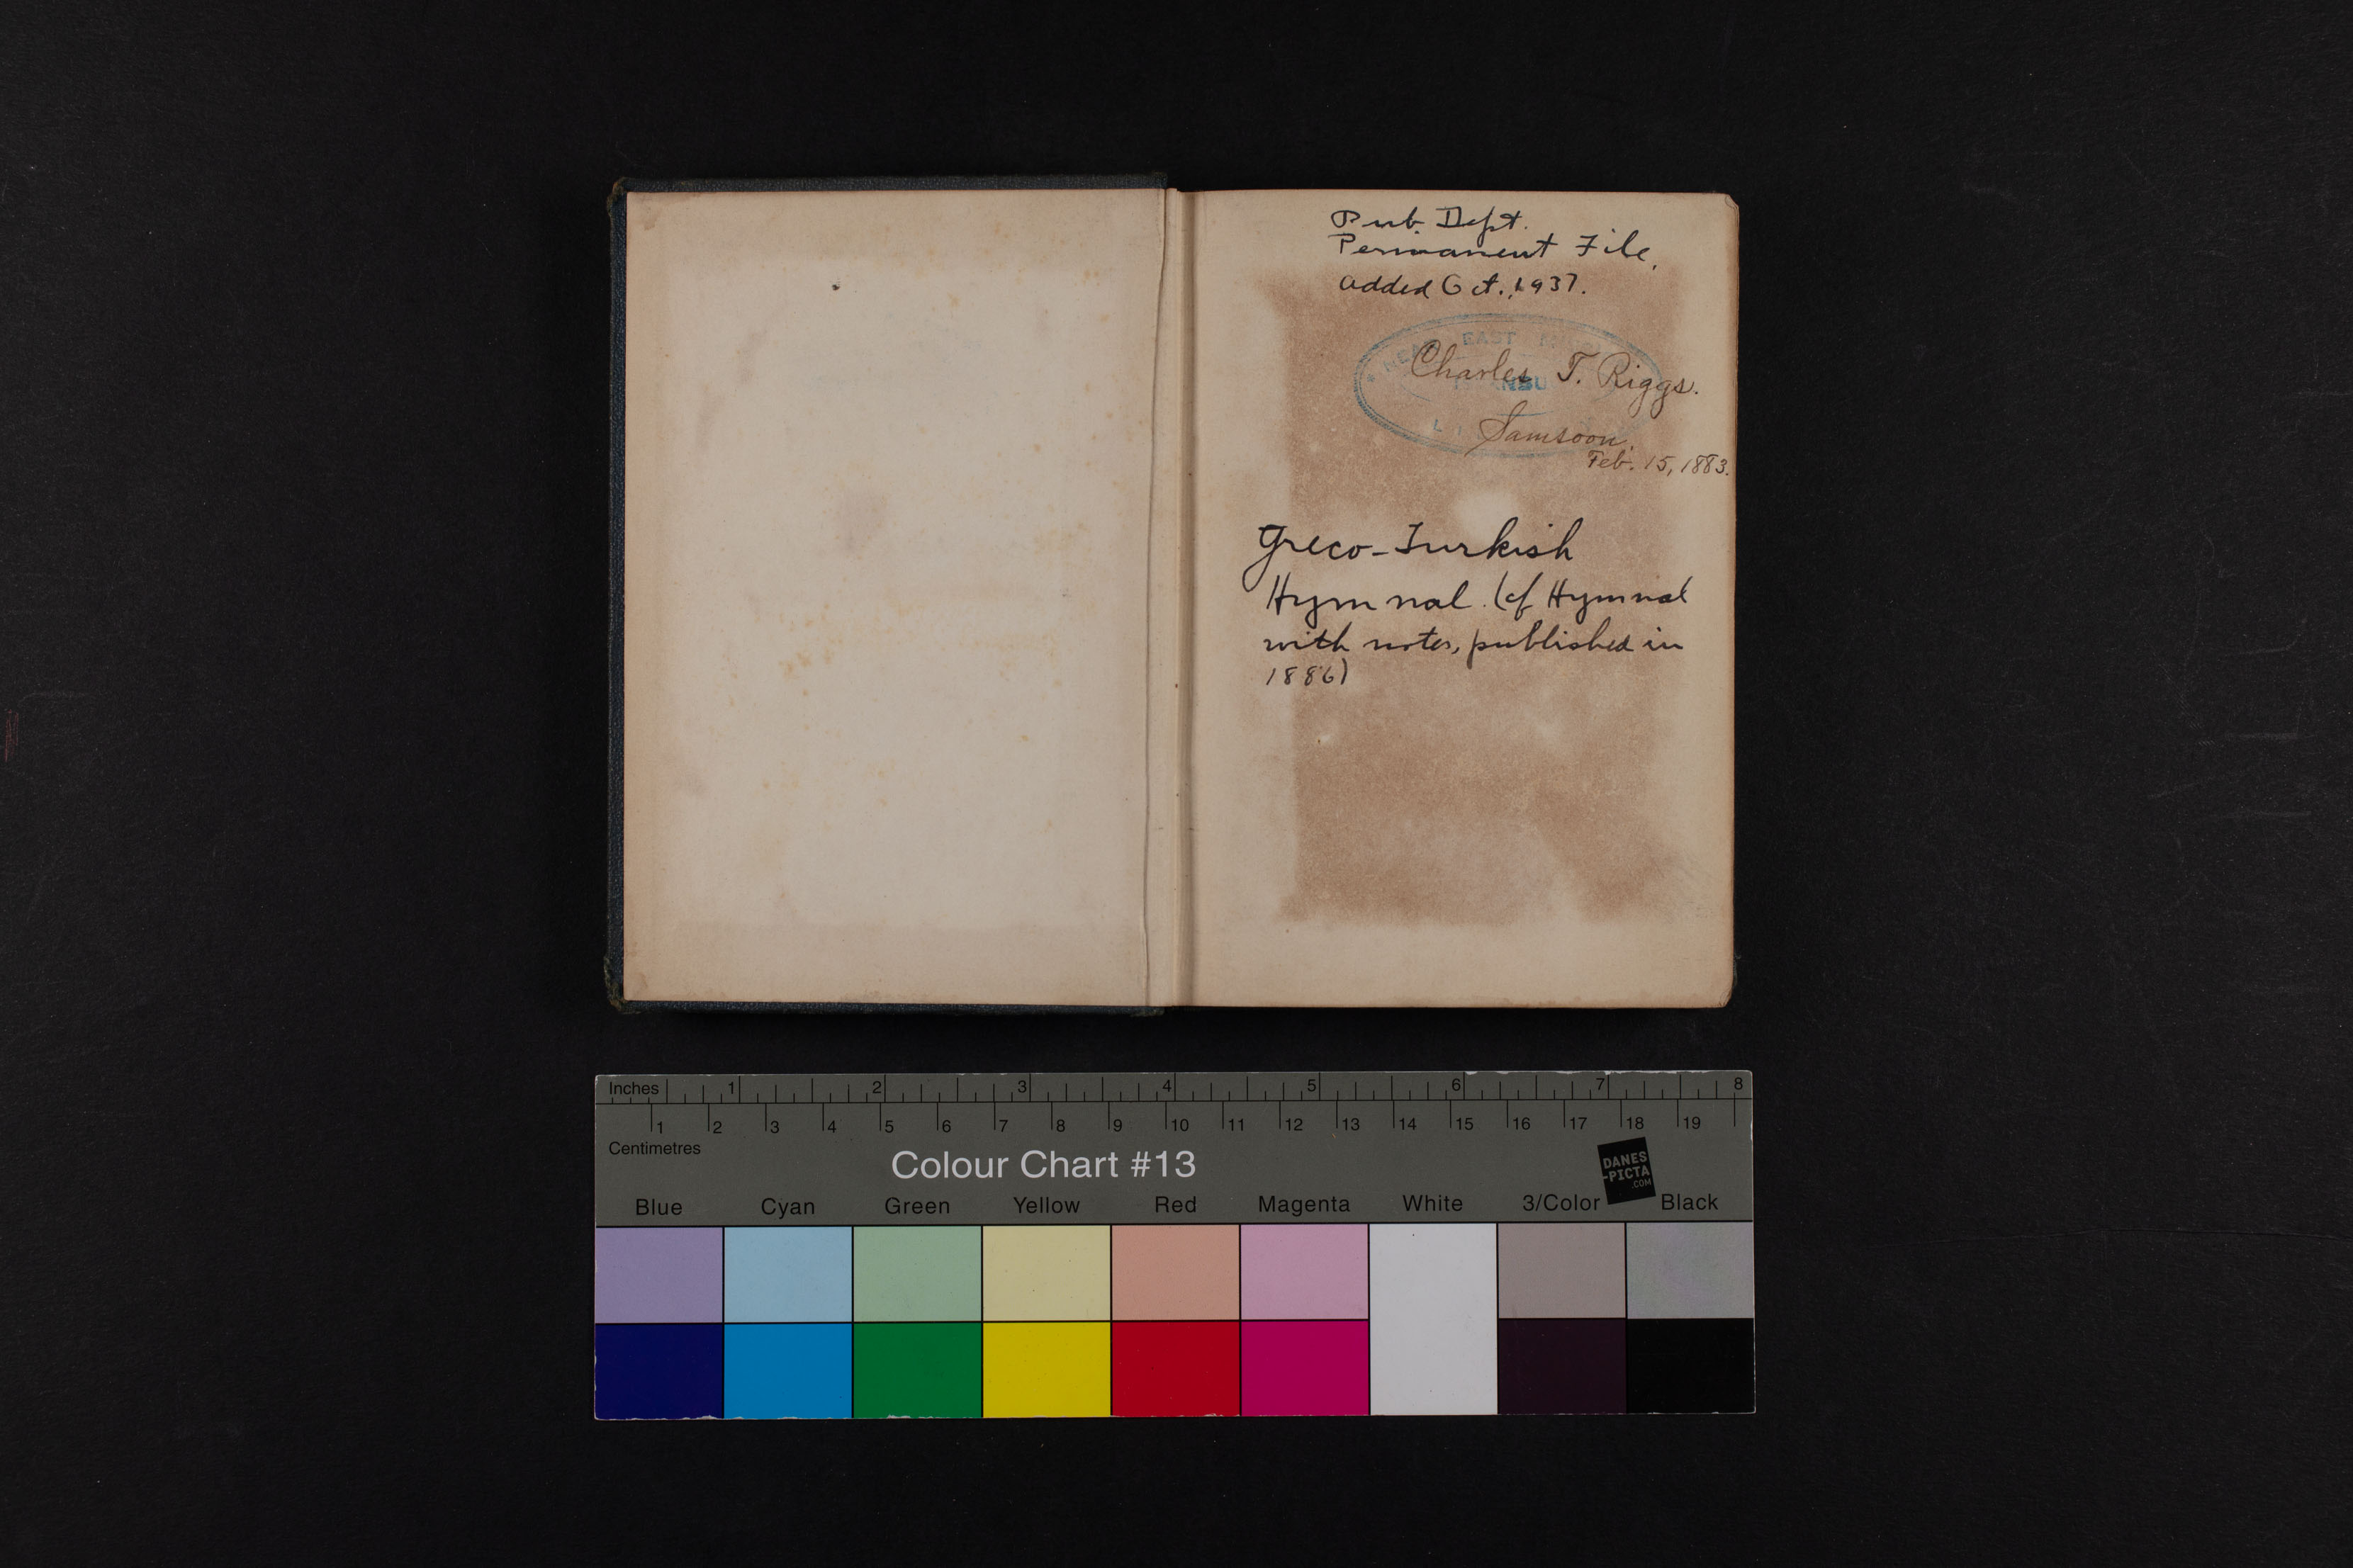 Pub. Dept.
Permanent File,
added Oct., 1937.
NEAR EAST
Charles T. Riggs.
Samsoon,
Feb. 15, 1883.
Greco-Turkish
Hymnal. (cf Hymnal
with notes, published in
1886)
Inches 1 2 3 4 5 6 7 8
1 2 3 4 5 6 7 8 9 10 11 12 13 14 15 16 17 18 19
Centimetres
Colour Chart #13
DANES
-PICTA
.COM
Blue Cyan Green Yellow Red Magenta White 3/Color Black